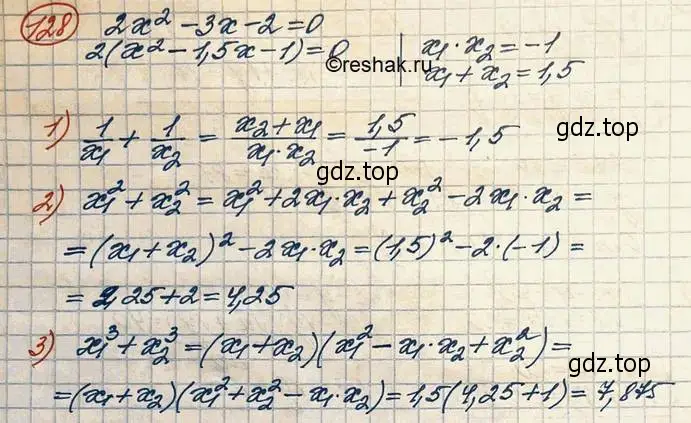 128 2x² - 3x - 2 = 0
2(x² - 1,5x - 1) = 0 | x₁ · x₂ = -1
©reshak.ru x₁ + x₂ = 1,5
1) 1/x₁ + 1/x₂ = (x₂ + x₁)/(x₁ · x₂) = 1,5/-1 = -1,5
gdz.top
gdz.top
2) x₁² + x₂² = x₁² + 2x₁ · x₂ + x₂² - 2x₁ · x₂ =
= (x₁ + x₂)² - 2x₁ · x₂ = (1,5)² - 2 · (-1) =
gdz.top
gdz.top
= 2,25 + 2 = 4,25
3) x₁³ + x₂³ = (x₁ + x₂)(x₁² - x₁ · x₂ + x₂²) =
gdz.top
gdz.top
= (x₁ + x₂)(x₁² + x₂² - x₁ · x₂) = 1,5(4,25 + 1) = 7,875